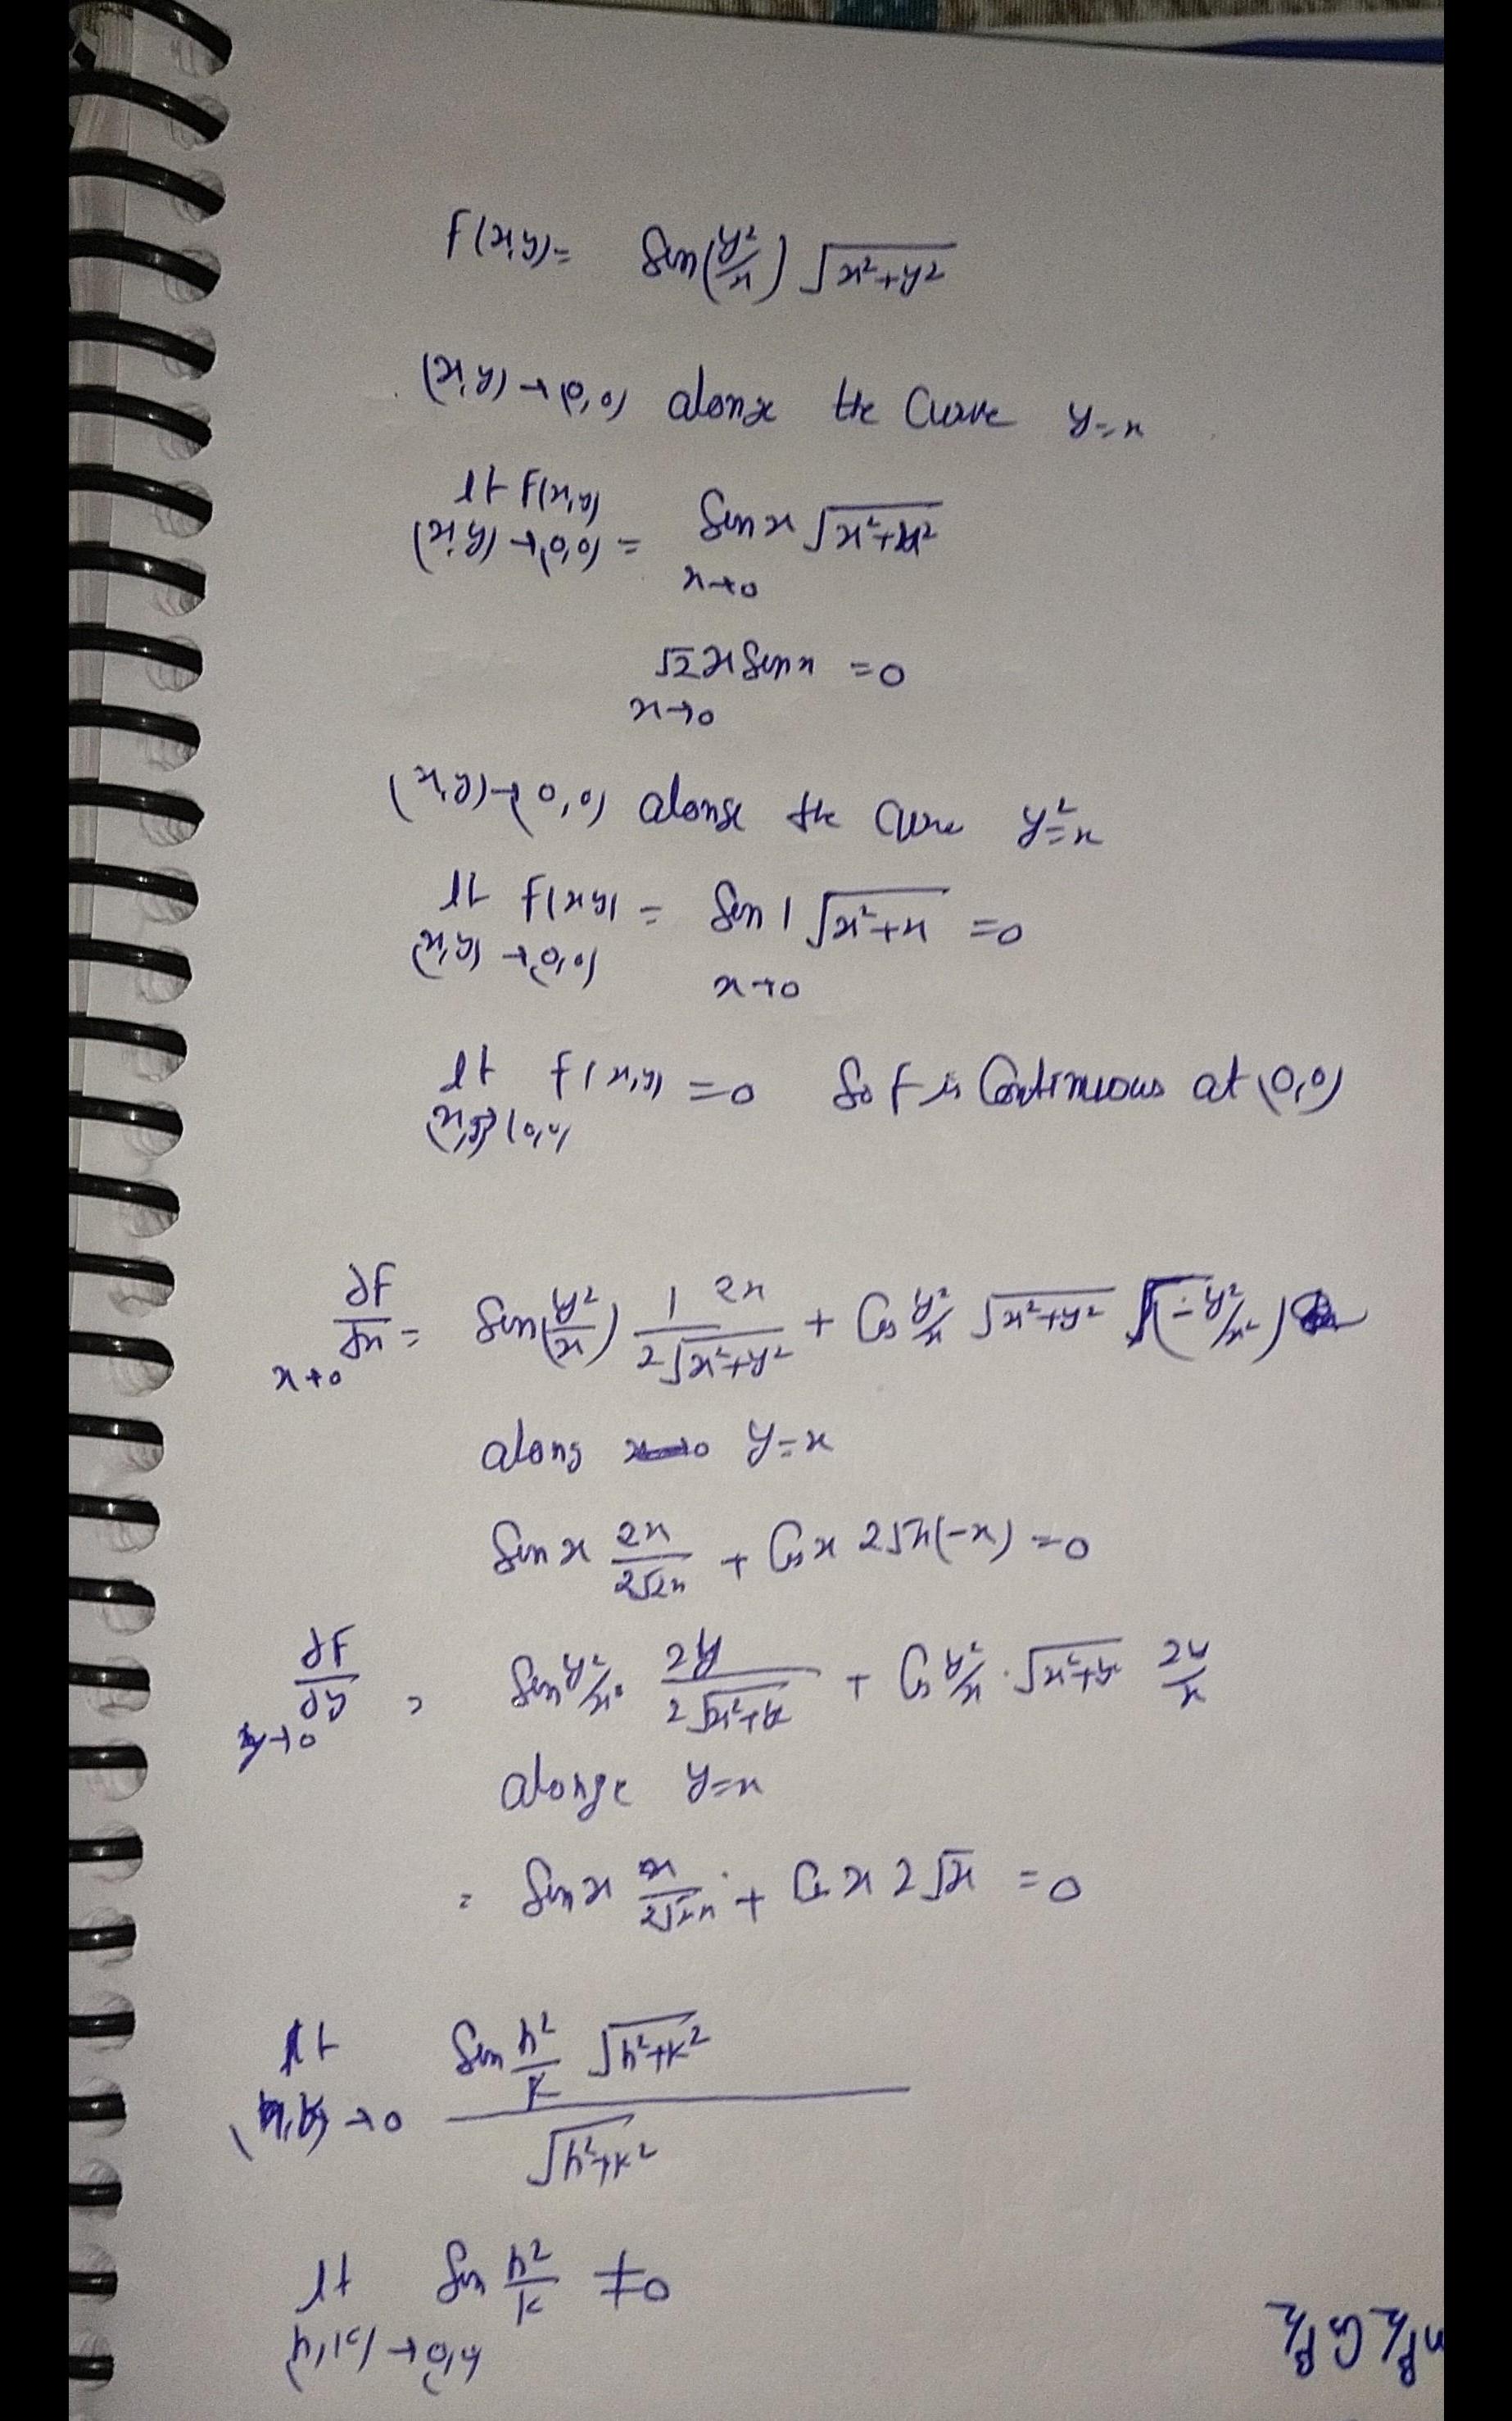 F(x,y) = Sin(y²/x) √x²+y²
(x,y)→(0,0) alonge the Curve y=x
lt F(x,y)
(x,y)→(0,0) = Sin x √x²+x²
x→0
√2 x Sin x =0
x→0
(x,y)→(0,0) alonge the Curve y²=x
lt f(x,y) = Sin 1 √x²+x =0
(x,y)→(0,0) x→0
lt f(x,y) =0 So f is Continuous at (0,0)
(x,y)→(0,0)
∂F/∂x = Sin(y²/x) 1/2√x²+y² 2x + Cos y²/x √x²+y² (-y²/x²)
x→0
along y=x
Sin x 2x/2√2x + Cos x 2√x(-x) =0
∂F/∂y = Sin y²/x · 2y/2√x²+y² + Cos y²/x · √x²+y² 2y/x
y→0
alonge y=x
= Sin x x/2√2x + Cos x 2√x =0
lt Sin h²/k √h²+k² / √h²+k²
(h,k)→0
lt Sin h²/k ≠0
(h,k)→(0,0)